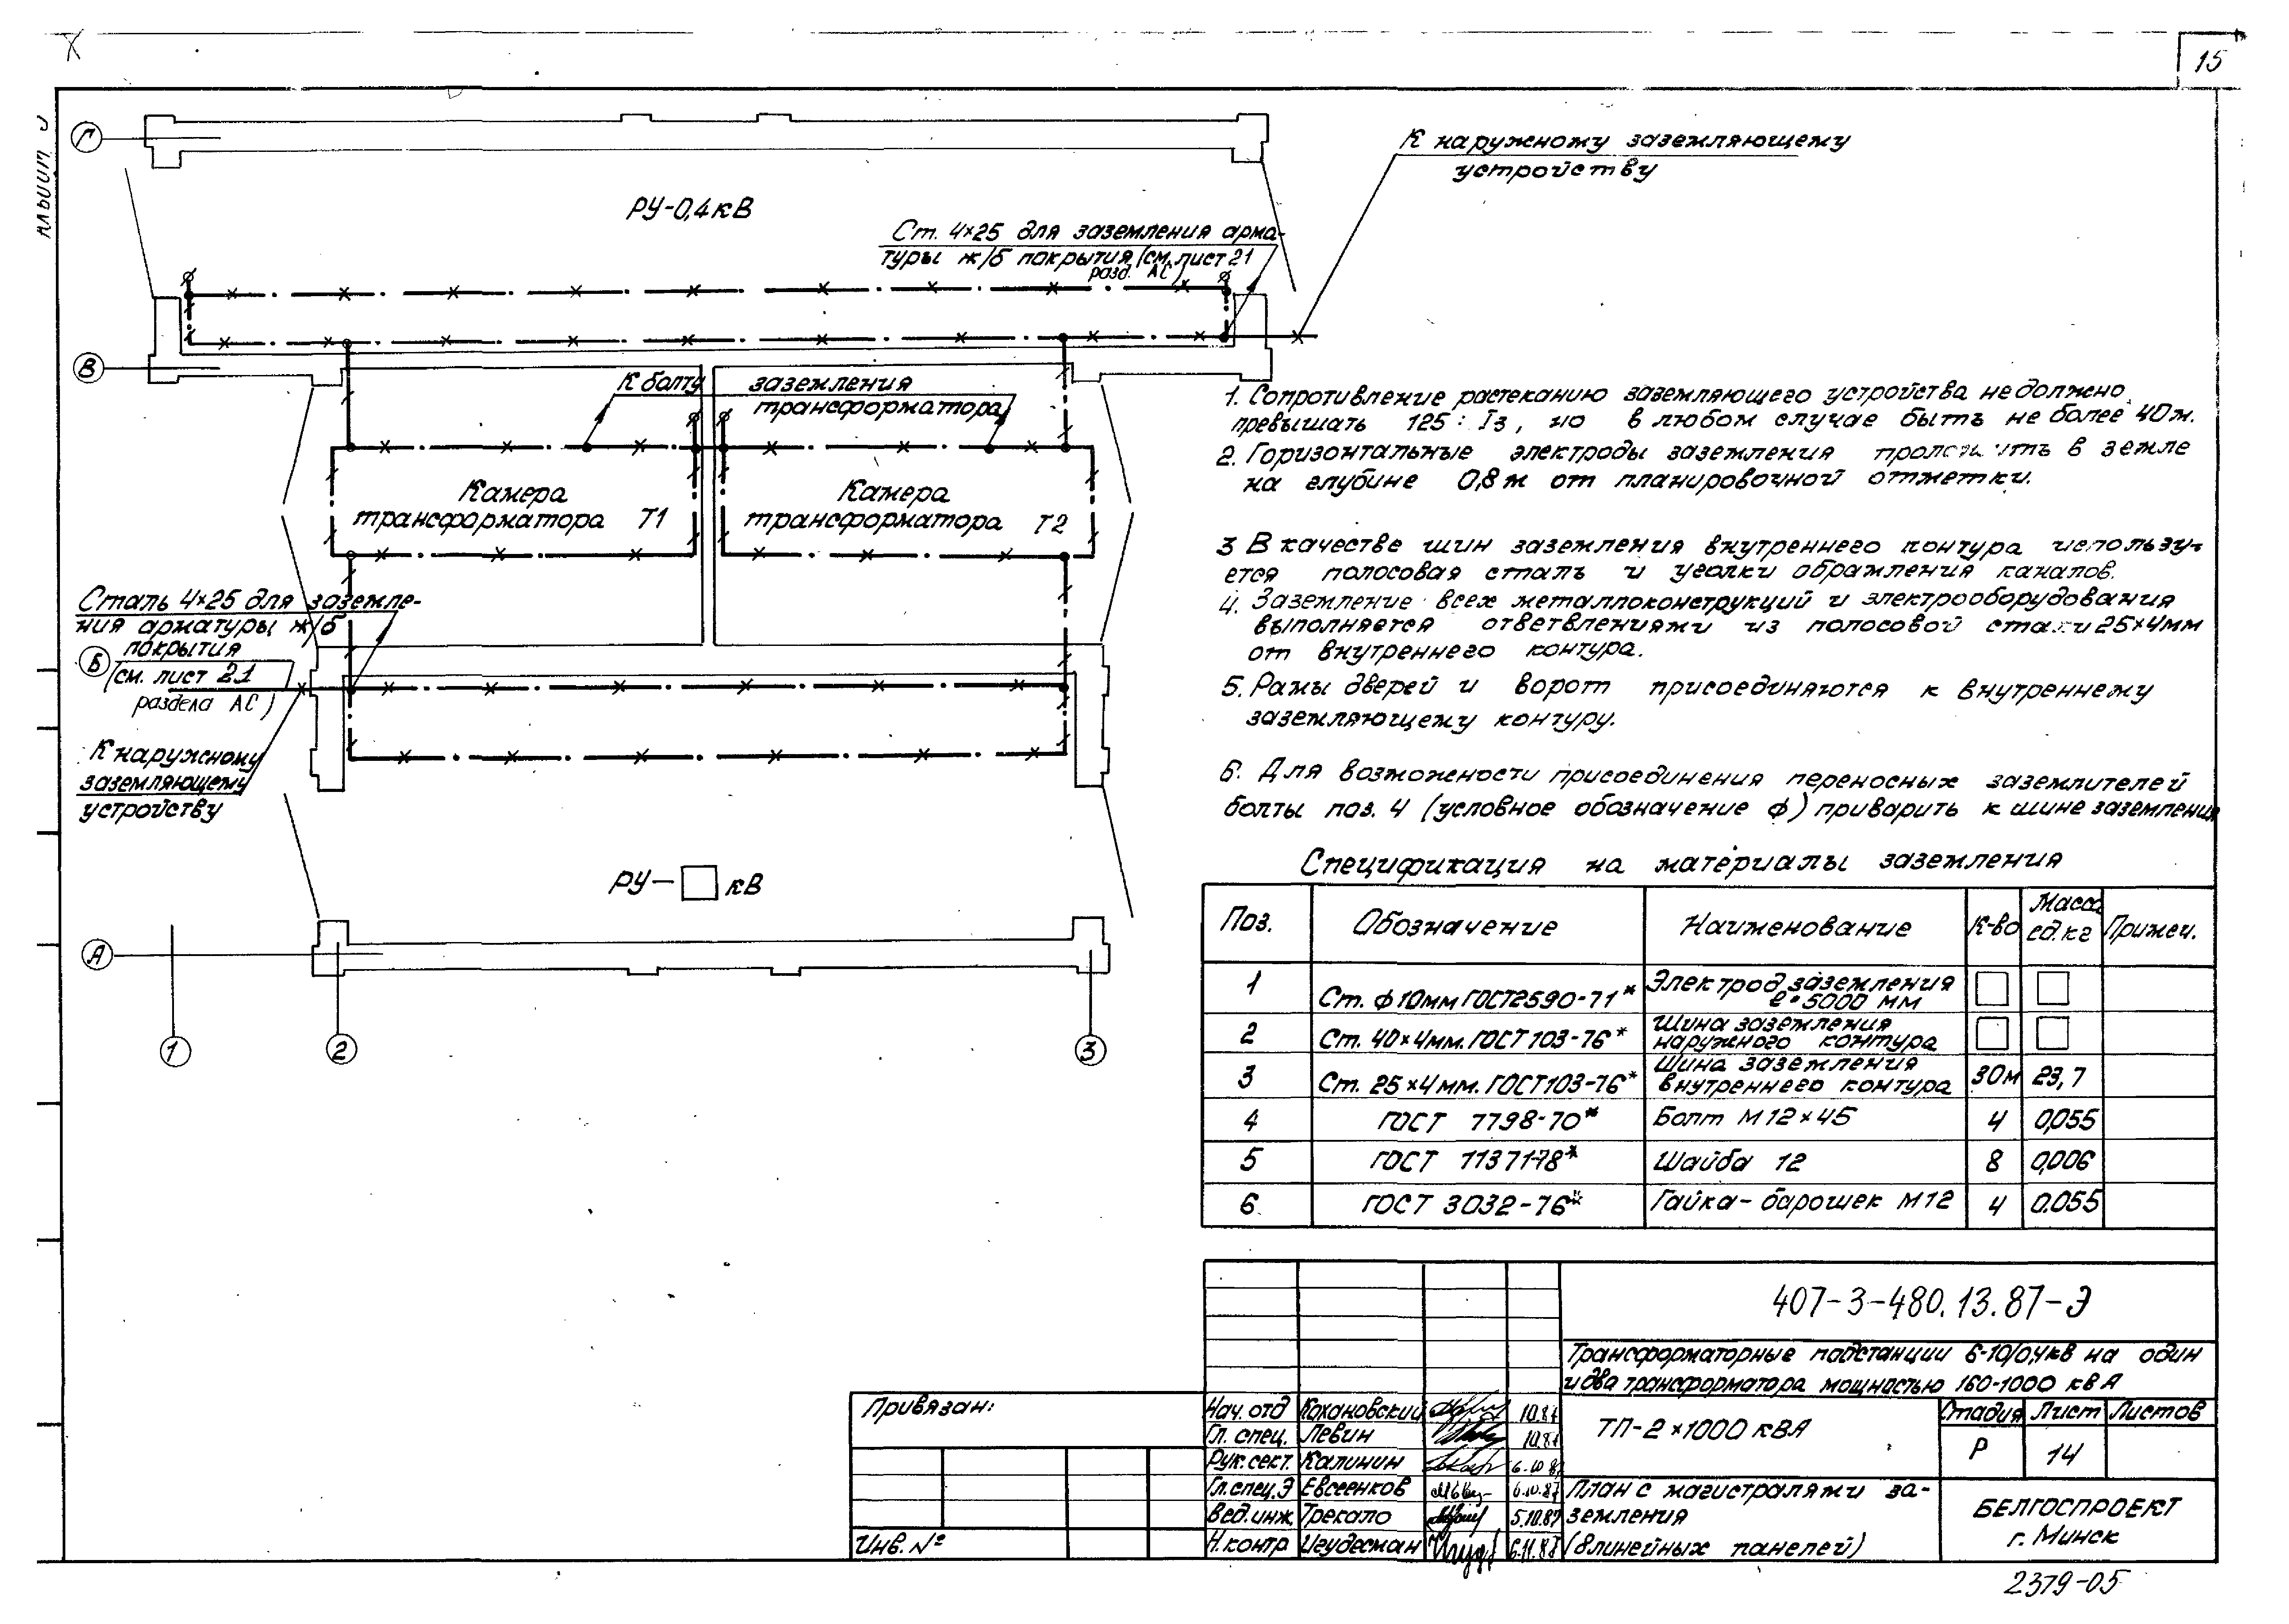 15
Альбом 5
Г
К наружному заземляющему
устройству
РУ-0,4кВ
Ст. 4×25 для заземления арма-
туры ж/б покрытия (см. лист 21
разд. АС)
В
К болту заземления
трансформатора
Камера
трансформатора Т1
Камера
трансформатора Т2
Сталь 4×25 для заземле-
ния арматуры ж/б
покрытия
Б
(см. лист 21
раздела АС)
К наружному
заземляющему
устройству
РУ-□кВ
А
1
2
3
1. Сопротивление растеканию заземляющего устройства не должно
превышать 125:Iз, но в любом случае быть не более 40м.
2. Горизонтальные электроды заземления проложить в земле
на глубине 0,8м от планировочной отметки.
3 В качестве шин заземления внутреннего контура использу-
ется полосовая сталь и уголки обрамления каналов.
4. Заземление всех металлоконструкций и электрооборудования
выполняется ответвлениями из полосовой стали 25×4мм
от внутреннего контура.
5. Рамы дверей и ворот присоединяются к внутреннему
заземляющему контуру.
6. Для возможности присоединения переносных заземлителей
болты поз. 4 (условное обозначение ф) приварить к шине заземления
Спецификация на материалы заземления
Поз. Обозначение Наименование К-во Масса ед. кг Примеч.
1 Ст. ф10мм ГОСТ2590-71* Электрод заземления ℓ=5000 мм □ □
2 Ст. 40×4мм. ГОСТ 103-76* Шина заземления наружного контура □ □
3 Ст. 25×4мм. ГОСТ103-76* Шина заземления внутреннего контура 30м 23,7
4 ГОСТ 7798-70* Болт М12×45 4 0,055
5 ГОСТ 11371-78* Шайба 12 8 0,006
6 ГОСТ 3032-76* Гайка-барошек М12 4 0.055
407-3-480.13.87-Э
Трансформаторные подстанции 6-10/0,4кВ на один
и два трансформатора мощностью 160-1000 кВА
Привязан:
Инв. №
Нач. отд Кохановский 10.87
Гл. спец. Левин 10.87
Рук. сект. Калинин 6.10.87
Гл. спец. Э Евсеенков 6.10.87
Вед. инж. Трекало 5.10.87
Н. контр Игудесман 6.11.87
ТП-2×1000 кВА
Стадия Лист Листов
Р 14
План с магистралями за-
земления
(8 линейных панелей)
БЕЛГОСПРОЕКТ
г. Минск
2379-05